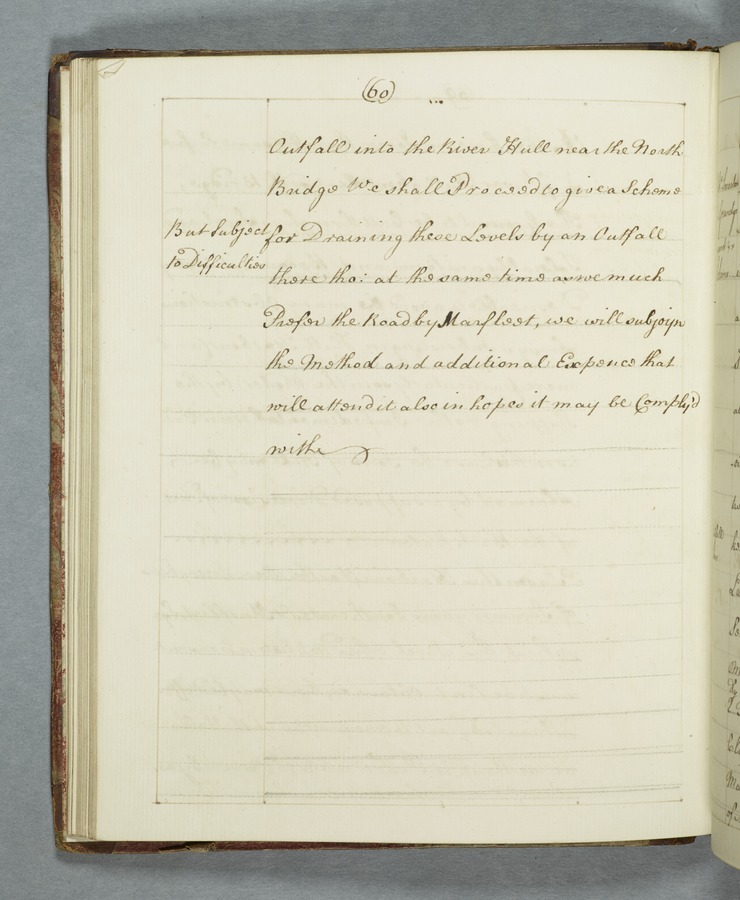 (60)
Outfall into the River Hull near the North
Bridge We shall Proceed to give a Scheme
But Subject
to Difficulties
for Draining these Levels by an Outfall
there tho: at the same time as we much
Prefer the Road by Marfleet, we will subjoyn
the Method and additional Expence that
will attend it also in hopes it may be Comply'd
with